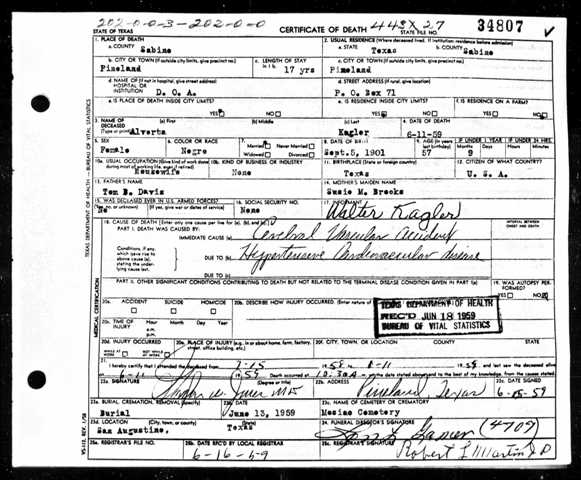 202-0-0-3-202-0-0
STATE OF TEXAS
CERTIFICATE OF DEATH
443X 27
STATE FILE NO.
34807
1. PLACE OF DEATH
2. USUAL RESIDENCE (Where deceased lived. If institution: residence before admission)
a. COUNTY
Sabine
a. STATE
Texas
b. COUNTY
Sabine
b. CITY OR TOWN (If outside city limits, give precinct no.)
Pineland
c. LENGTH OF STAY
in 1 b
17 yrs
c. CITY OR TOWN (If outside city limits, give precinct no.)
Pineland
d. NAME OF (If not in hospital, give street address)
HOSPITAL OR
INSTITUTION
D. O. A.
d. STREET ADDRESS (If rural, give location)
P. O. Box 71
e. IS PLACE OF DEATH INSIDE CITY LIMITS?
YES NO
e. IS RESIDENCE INSIDE CITY LIMITS?
YES NO
f. IS RESIDENCE ON A FARM?
YES NO
3. NAME OF
DECEASED
(Type or print)
(a) First
Alverta
(b) Middle
(c) Last
Kagler
4. DATE OF DEATH
6-11-59
5. SEX
Female
6. COLOR OR RACE
Negro
7. Married Never Married
Widowed Divorced
8. DATE OF BIRTH
Sept.5, 1901
9. AGE (In years
57
IF UNDER 1 YEAR
Months
9
Days
IF UNDER 24 HRS.
Hours Minutes
10a. USUAL OCCUPATION (Give kind of work done
during most of working life, even if retired)
Housewife
10b. KIND OF BUSINESS OR INDUSTRY
None
11. BIRTHPLACE (State or foreign country)
Texas
12. CITIZEN OF WHAT COUNTRY?
U. S. A.
13. FATHER'S NAME
Tom B. Davis
14. MOTHER'S MAIDEN NAME
Susie M. Brooks
15. WAS DECEASED EVER IN U.S. ARMED FORCES?
(Yes, no, or unknown) (If yes, give war or dates of service)
No
16. SOCIAL SECURITY NO.
None
17. INFORMANT
Walter Kagler
18. CAUSE OF DEATH (Enter only one cause per line for (a), (b), and (c).)
INTERVAL BETWEEN
ONSET AND DEATH
PART I. DEATH WAS CAUSED BY:
IMMEDIATE CAUSE (a)
Cerebral Vascular Accident
Conditions, if any,
which gave rise to
above cause (a),
stating the under-
lying cause last.
DUE TO (b)
Hypertensive Cardiovascular disease
DUE TO (c)
PART II. OTHER SIGNIFICANT CONDITIONS CONTRIBUTING TO DEATH BUT NOT RELATED TO THE TERMINAL DISEASE CONDITION GIVEN IN PART I(a)
19. WAS AUTOPSY PER-
FORMED?
YES NO
20a. ACCIDENT SUICIDE HOMICIDE
20b. DESCRIBE HOW INJURY OCCURRED. (Enter nature of
20c. TIME OF
INJURY
Hour Month Day Year
a.m.
p.m.
TEXAS DEPARTMENT OF HEALTH
REC'D JUN 18 1959
BUREAU OF VITAL STATISTICS
20d. INJURY OCCURRED
20e. PLACE OF INJURY (e.g., in or about home, farm, factory,
street, office building, etc.)
20f. CITY, TOWN, OR LOCATION
COUNTY
STATE
21. I hereby certify that I attended the deceased from
and last saw the deceased alive
Death occurred at
10:30A
m. on the date stated above; and to the best of my knowledge, from the causes stated.
22a. SIGNATURE
(Degree or title)
MD
22b. ADDRESS
Pineland Texas
22c. DATE SIGNED
6-15-59
23a. BURIAL, CREMATION, REMOVAL (Specify)
Burial
23b. DATE
June 13, 1959
23c. NAME OF CEMETERY OR CREMATORY
23d. LOCATION (City, town, or county) (State)
San Augustine, Texas
24. FUNERAL DIRECTOR'S SIGNATURE
(4709)
25a. REGISTRAR'S FILE NO.
25b. DATE REC'D BY LOCAL REGISTRAR
6-16-59
25c. REGISTRAR'S SIGNATURE
Robert L Martin J P
TEXAS DEPARTMENT OF HEALTH—BUREAU OF VITAL STATISTICS
MEDICAL CERTIFICATION
VS-112 REV. 1/58